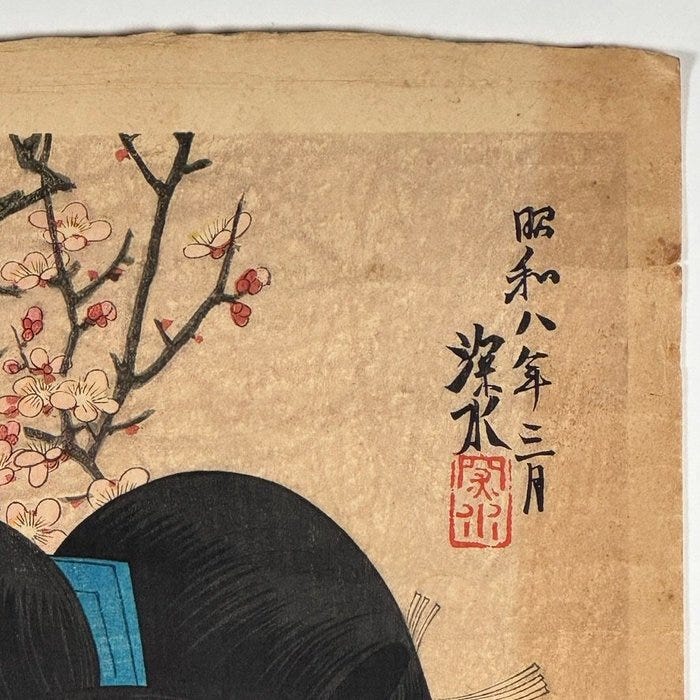 昭和八年三月
深水
深水